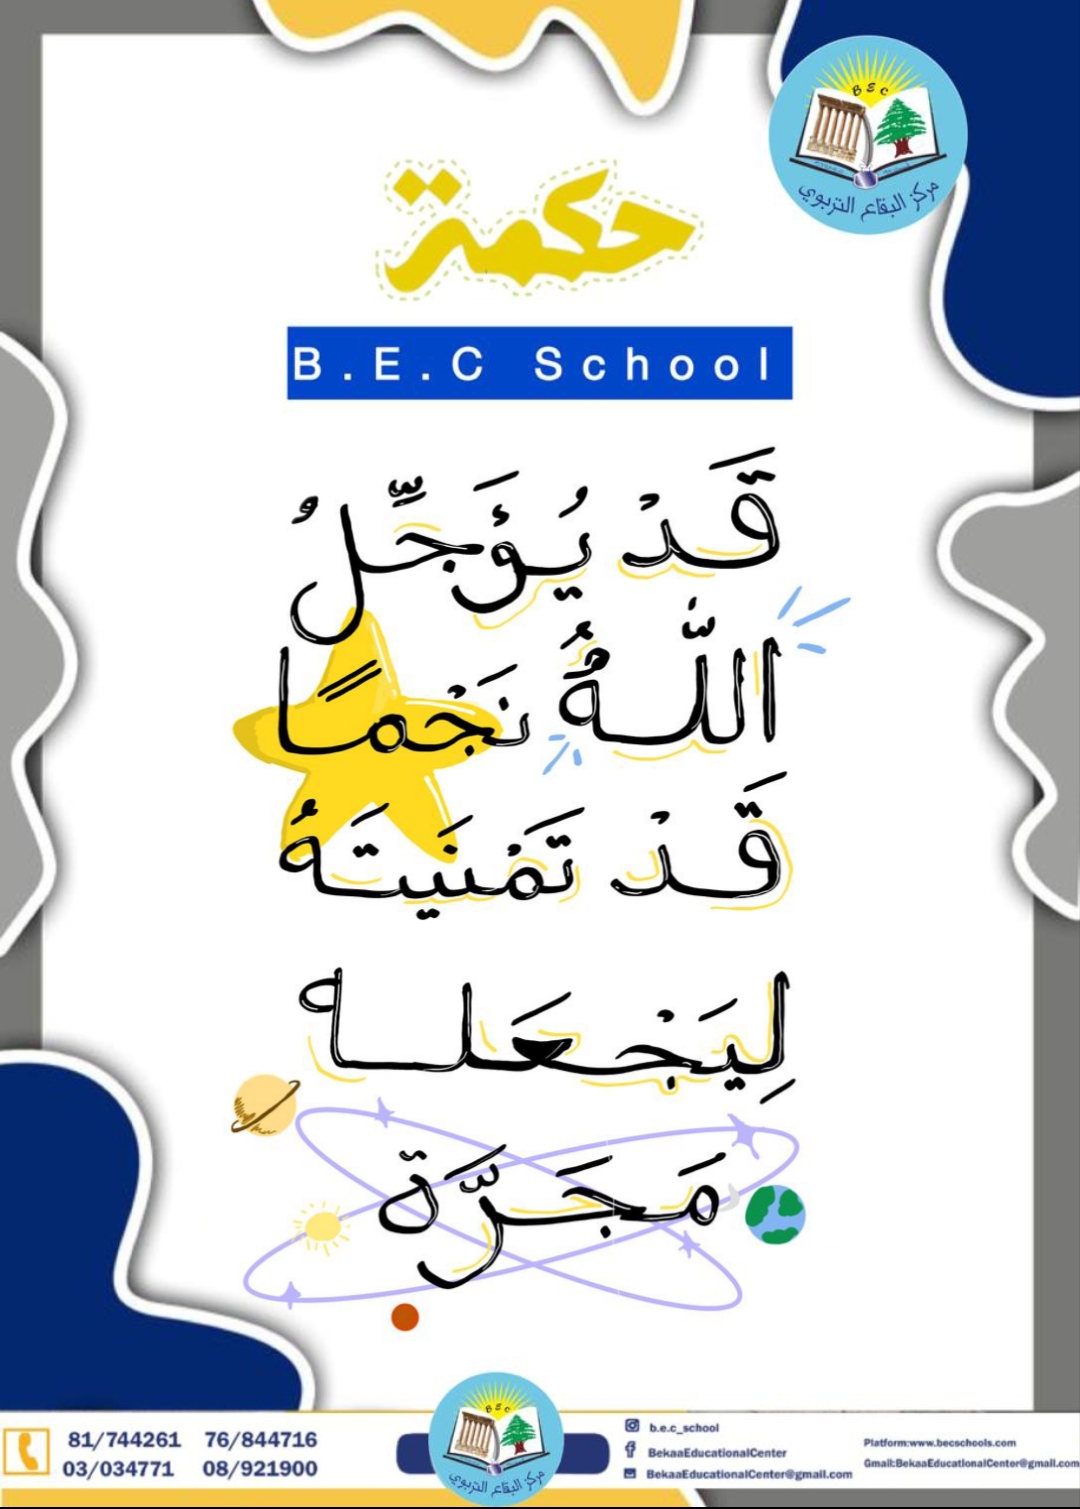 B E C
مركز البقاع التربوي
حكمة
B.E.C School
قَدْ يُؤَجِّلُ
اللّٰهُ نَجْمًا
قَدْ تَمْنَيتَهُ
لِيَجْعَله
مَجَرَّة
81/744261 76/844716
03/034771 08/921900
B E C
مركز البقاع التربوي
b.e.c_school
BekaaEducationalCenter
BekaaEducationalCenter@gmail.com
Platform:www.becschools.com
Gmail:BekaaEducationalCenter@gmail.com